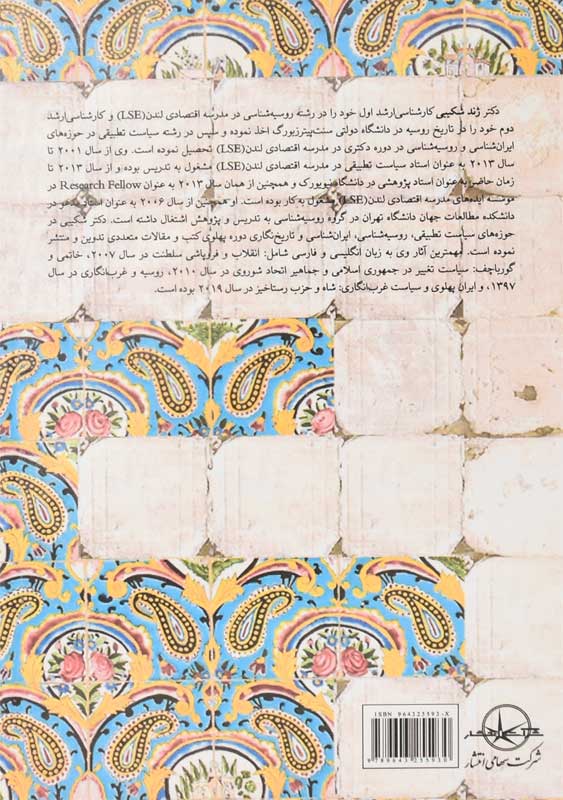 دکتر ژند شکیبی کارشناسی‌ارشد اول خود را در رشته روسیه‌شناسی در مدرسه اقتصادی لندن(LSE) و کارشناسی‌ارشد
دوم خود را در تاریخ روسیه در دانشگاه دولتی سنت‌پیترزبورگ اخذ نموده و سپس در رشته سیاست تطبیقی در حوزه‌های
ایران‌شناسی و روسیه‌شناسی در دوره دکتری در مدرسه اقتصادی لندن(LSE) تحصیل نموده است. وی از سال ۲۰۰۱ تا
سال ۲۰۱۳ به عنوان استاد سیاست تطبیقی در مدرسه اقتصادی لندن(LSE) مشغول به تدریس بوده و از سال ۲۰۱۳ تا
زمان حاضر به‌عنوان استاد پژوهشی در دانشگاه نیویورک و همچنین از همان سال ۲۰۱۳ به عنوان Research Fellow در
موسسه ایده‌های مدرسه اقتصادی لندن(LSE) مشغول به کار بوده است. او همچنین از سال ۲۰۰۶ به عنوان استاد مدعو در
دانشکده مطالعات جهان دانشگاه تهران در گروه روسیه‌شناسی به تدریس و پژوهش اشتغال داشته است. دکتر شکیبی در
حوزه‌های سیاست تطبیقی، روسیه‌شناسی، ایران‌شناسی و تاریخ‌نگاری دوره پهلوی کتب و مقالات متعددی تدوین و منتشر
نموده است. مهمترین آثار وی به زبان انگلیسی و فارسی شامل: انقلاب و فروپاشی سلطنت در سال ۲۰۰۷، خاتمی و
گورباچف: سیاست تغییر در جمهوری اسلامی و جماهیر اتحاد شوروی در سال ۲۰۱۰، روسیه و غرب‌انگاری در سال
۱۳۹۷، و ایران پهلوی و سیاست غرب‌انگاری: شاه و حزب رستاخیز در سال ۲۰۱۹ بوده است.
ISBN 964325592-X
9 789643 255930
شرکت سهامی انتشار